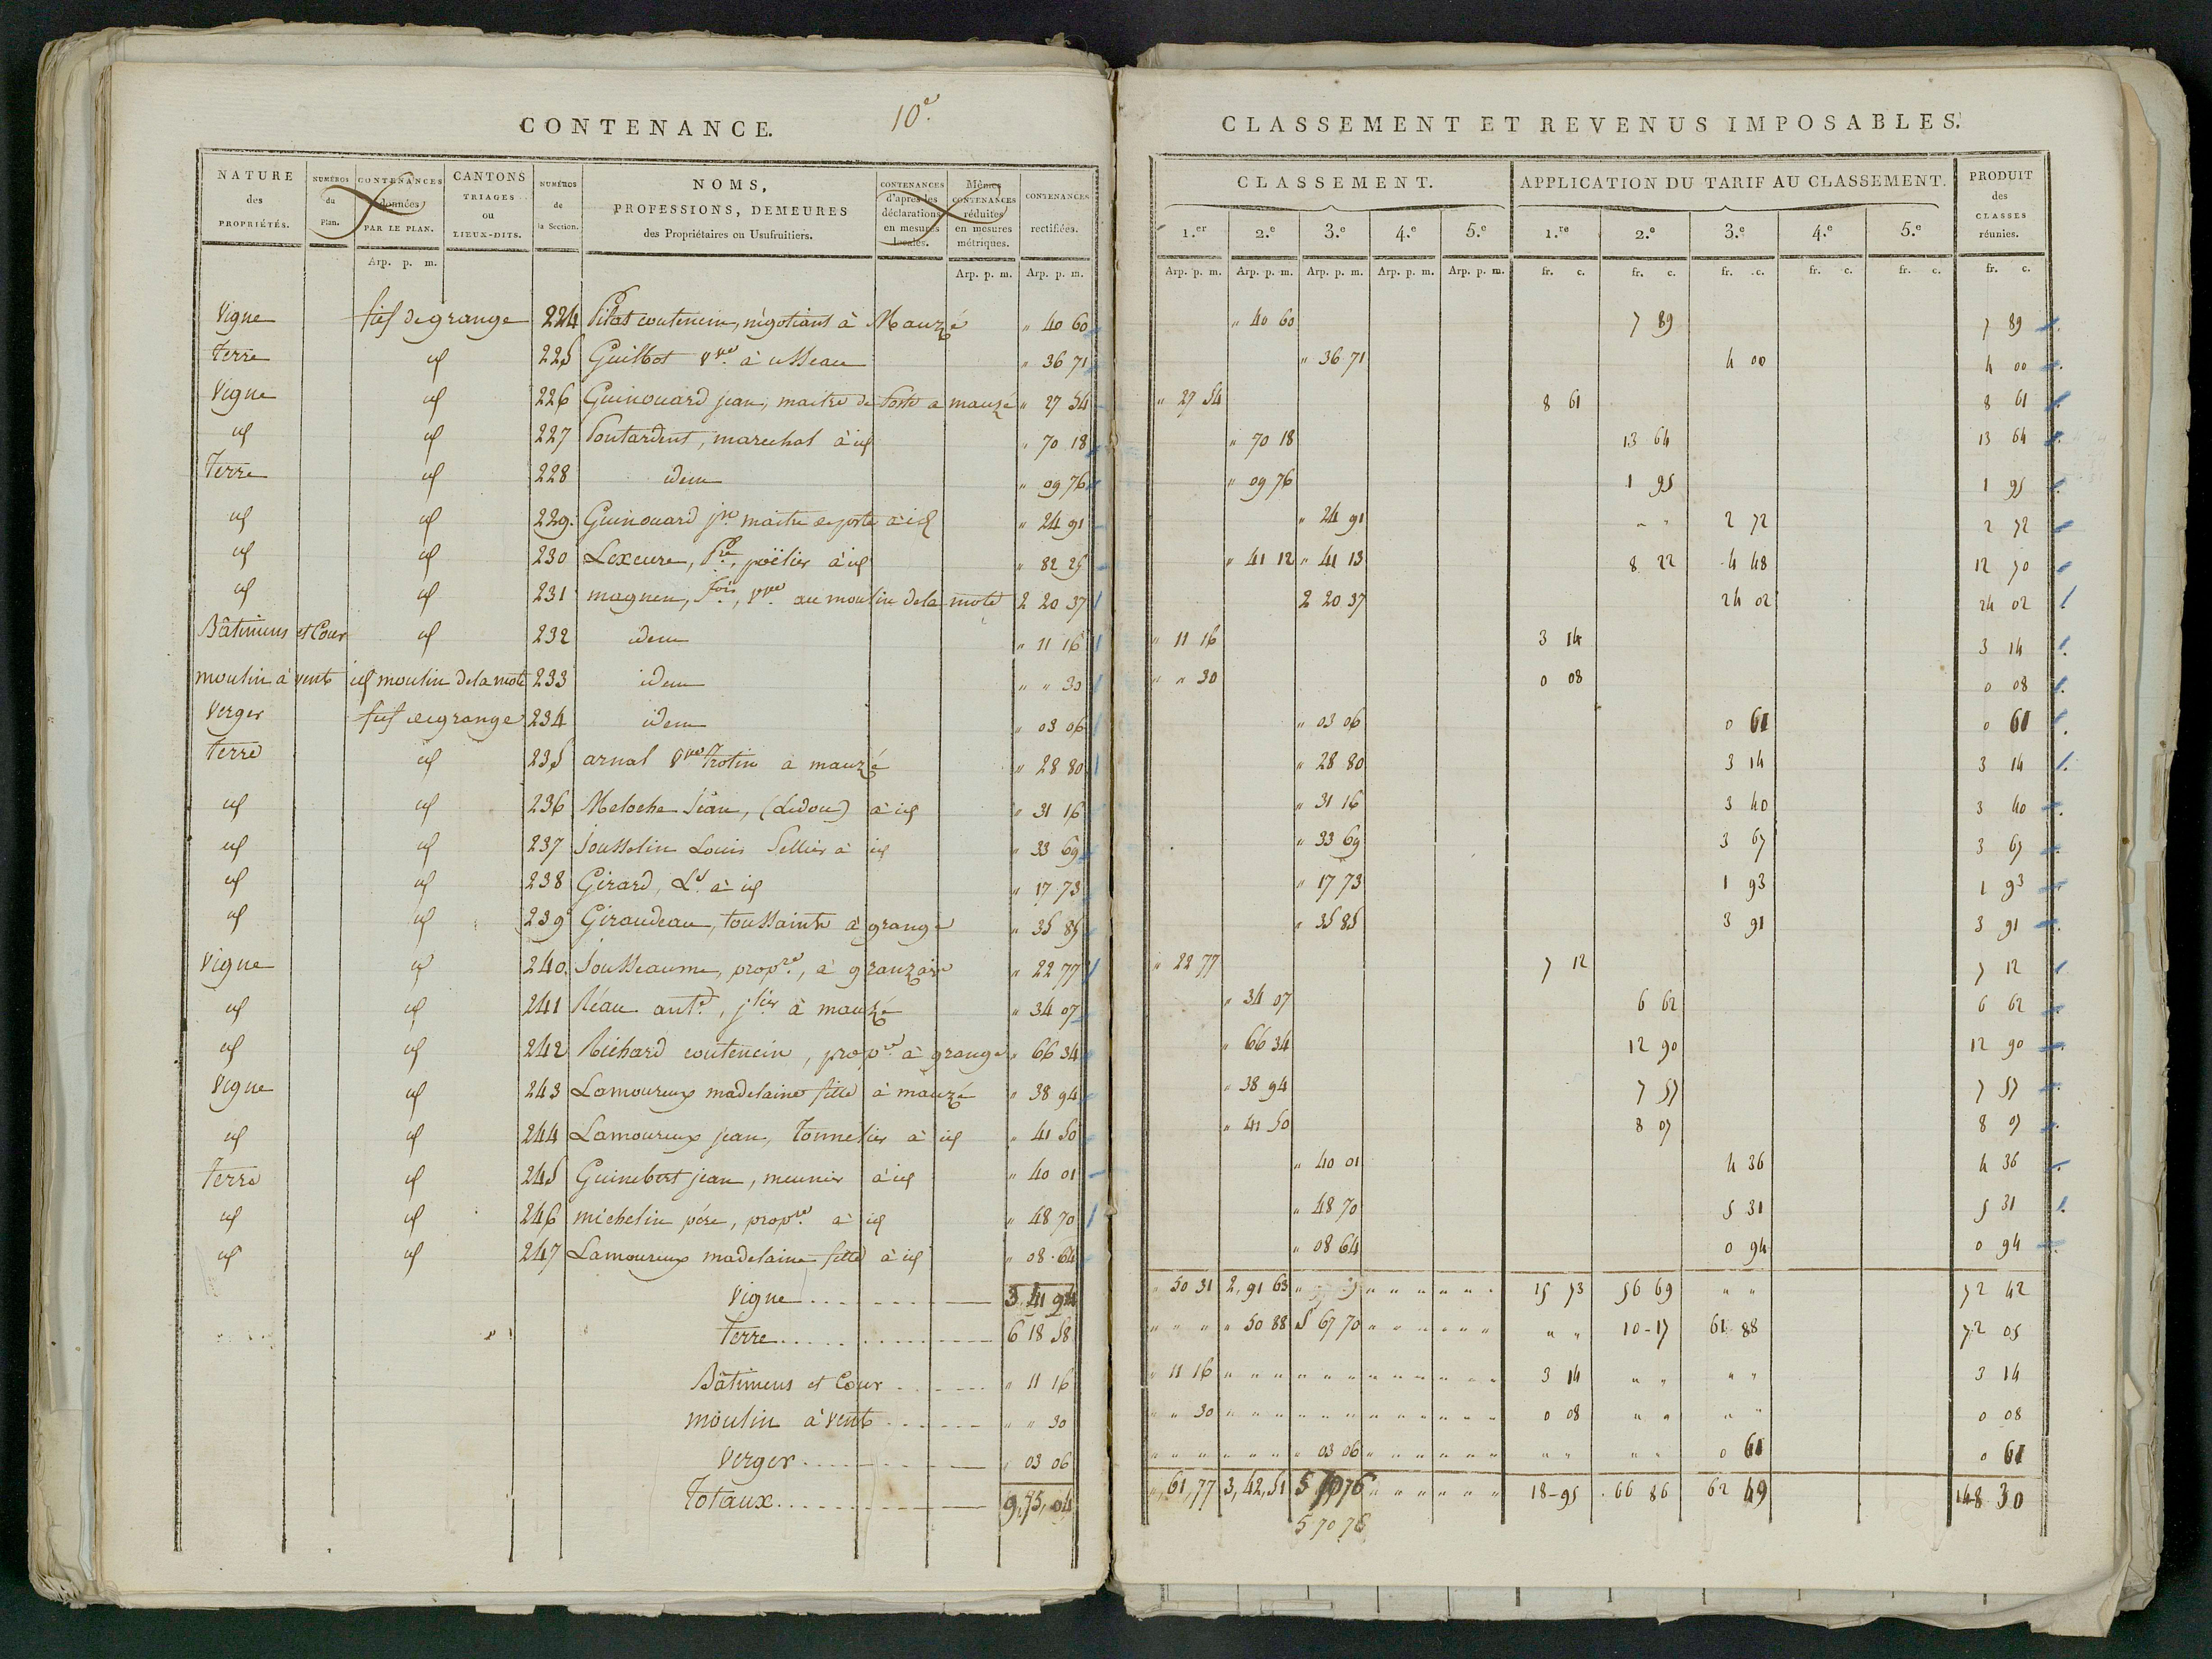 CONTENANCE. 10e.
NATURE des PROPRIÉTÉS. NUMÉROS du Plan. CONTENANCES données PAR LE PLAN. CANTONS TRIAGES ou LIEUX-DITS. NUMÉROS de la Section. NOMS, PROFESSIONS, DEMEURES des Propriétaires ou Usufruitiers. CONTENANCES d'après les déclarations en mesures locales. Mêmes CONTENANCES réduites en mesures métriques. CONTENANCES rectifiées.
Arp. p. m. Arp. p. m. Arp. p. m.
Vigne fief de grange 224 Pilat coutencin, négotiant à Mauzé " 40 60
Terre id 225 Guilbot vve. à usseau " 36 71
Vigne id 226 Guinouard jean, maitre de Poste a mauzé " 27 54
id id 227 Poutardent, marechal à id " 70 18
Terre id 228 idem " 09 76
id id 229. Guinouard jn maitre de poste à id " 24 91
id id 230 Lexcure, Pre., poëlier à id " 82 25
id id 231 magnen, fois, vve. au moulin de la mote 2 20 37
Bâtimens et Cour id 232 idem " 11 16
moulin à vent id moulin de la mote 233 idem " " 30
Verger fief de grange 234 idem " 03 06
Terre id 235 arnal vve Trotin a mauzé " 28 80
id id 236 Meloche Jean, (Ledoux) à id " 31 16
id id 237 Jousselin Louis Sellier à id " 33 69
id id 238 Girard, Ls. à id " 17 73
id id 239 Giraudeau, toussaint à grange " 35 85
Vigne id 240. Jousseaume, propre., à granzay " 22 77
id id 241 Réau ante., jlier à mauzé " 34 07
id id 242 Richard coutencin, propre à grange " 66 34
Vigne id 243 Lamoureux madelaine fille à mauzé " 38 94
id id 244 Lamoureux jean, Tonnelier à id " 41 50
Terre id 245 Guinebert jean, meunier à id " 40 01
id id 246 michelin père, propre. à id " 48 70
id id 247 Lamoureux madelaine fille à id " 08 64
Vigne 3 41 94
Terre 6 18 58
Bâtimens et Cour " 11 16
moulin à vent " " 30
Verger " 03 06
Totaux 9,75,04
CLASSEMENT ET REVENUS IMPOSABLES.
CLASSEMENT. APPLICATION DU TARIF AU CLASSEMENT. PRODUIT des CLASSES réunies.
1.er 2.e 3.e 4.e 5.e 1.re 2.e 3.e 4.e 5.e
Arp. p. m. Arp. p. m. Arp. p. m. Arp. p. m. Arp. p. m. fr. c. fr. c. fr. c. fr. c. fr. c. fr. c.
" 40 60 7 89 7 89
" 36 71 4 00 4 00
" 27 54 8 61 8 61
" 70 18 13 64 13 64
" 09 76 1 95 1 95
" 24 91 " " 2 72 2 72
" 41 12 " 41 13 8 22 4 48 12 70
2 20 37 24 02 24 02
" 11 16 3 14 3 14
" " 30 0 08 0 08
" 03 06 0 61 0 61
" 28 80 3 14 3 14
" 31 16 3 40 3 40
" 33 69 3 67 3 67
" 17 73 1 93 1 93
" 35 85 3 91 3 91
" 22 77 7 12 7 12
" 34 07 6 62 6 62
" 66 34 12 90 12 90
" 38 94 7 57 7 57
" 41 50 8 07 8 07
" 40 01 4 36 4 36
" 48 70 5 31 5 31
" 08 64 0 94 0 94
" 50 31 2,91 63 " " " " " " " " 15 73 56 69 " " 72 42
" " " " 50 88 5 67 70 " " " " " " " " 10-17 61 88 72 05
" 11 16 " " " " " " " " " " " " 3 14 " " " " 3 14
" " 30 " " " " " " " " " " " " 0 08 " " " " 0 08
" " " " " " " 03 06 " " " " " " " " " " 0 61 0 61
",61,77 3,42,51 5 70 76 " " " " " " 18-95 66 86 62 49 148 30
5 70 76